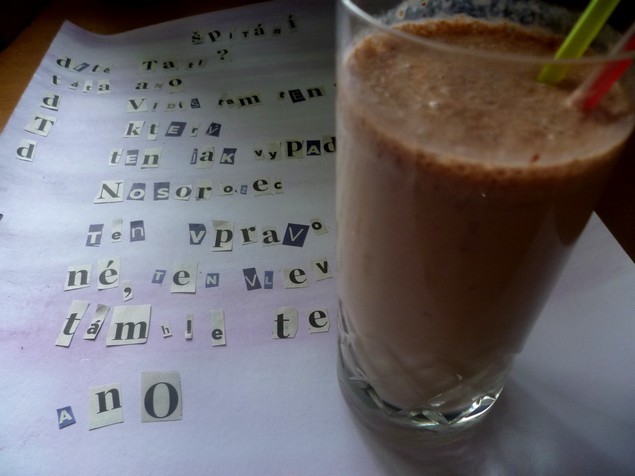 šPITáNí
dítě TaTi ?
táta ano
d VIDíš tam tEN
T kteRý
d ten jak vyPAD
NOSOROžEC
TEN vpraVo
né, TeN vLev
támhle te
AnO